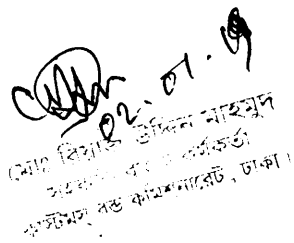 ০২.০১.
মোঃ রিয়াজ উদ্দিন মাহমুদ
কর্মকর্তা
কাস্টমস্ বন্ড কমিশনারেট, ঢাকা।